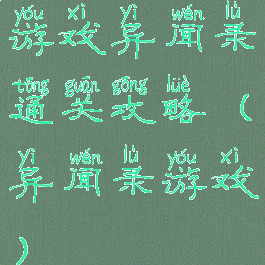 yóu xì yì wén lù
游戏异闻录
tōng guān gōng lüè
通关攻略（
yì wén lù yóu xì
异闻录游戏
）